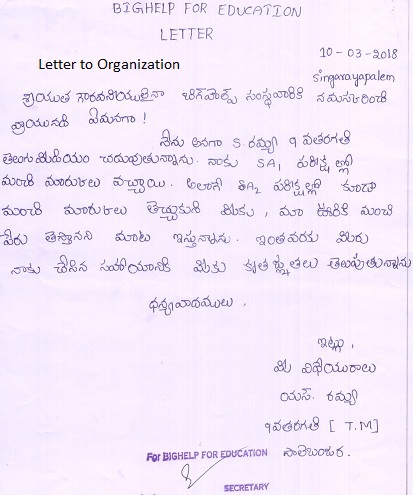 BIGHELP FOR EDUCATION
LETTER
10-03-2018
Letter to Organization
Singarayapalem
శ్రీయుత గౌరవనీయులైనా బిగ్‌హెల్ప్ సంస్థవారికి నమస్కరించి
వ్రాయునది ఏమనగా !
నేను అనగా S. రమ్య 9 వతరగతి
తెలుగుమీడియం చదువుతున్నాను. నాకు SA1 పరీక్షల్లో
మంచి మార్కులు వచ్చాయి. అలాగే SA2 పరీక్షల్లో కూడా
మంచి మార్కులు తెచ్చుకుని మీకు, మా ఊరికి మంచి
పేరు తెస్తానని మాట ఇస్తున్నాను. ఇంతవరకు మీరు
నాకు చేసిన సహాయానికి మీకు కృతజ్ఞతలు తెలుపుతున్నాను
ధన్యవాదములు.
ఇట్లు,
మీ విధేయురాలు
యస్. రమ్య
9వతరగతి [ T.M ]
పాతబందర.
For BIGHELP FOR EDUCATION
SECRETARY